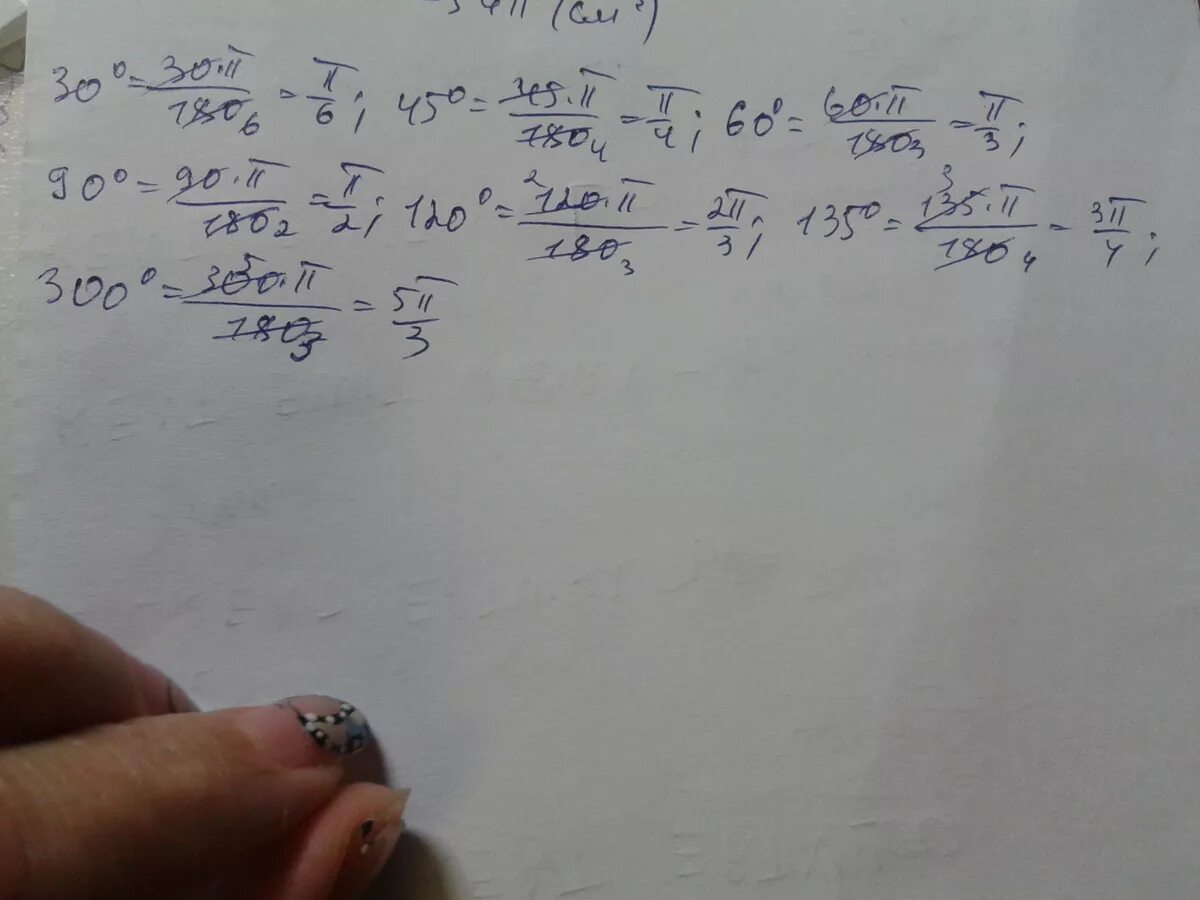 4π (см²)
30° = 30·π/180 6 = π/6; 45° = 45·π/180 4 = π/4; 60° = 60·π/180 3 = π/3;
90° = 90·π/180 2 = π/2; 120° = 2 120·π/180 3 = 2π/3; 135° = 3 135·π/180 4 = 3π/4;
300° = 5 300·π/180 3 = 5π/3